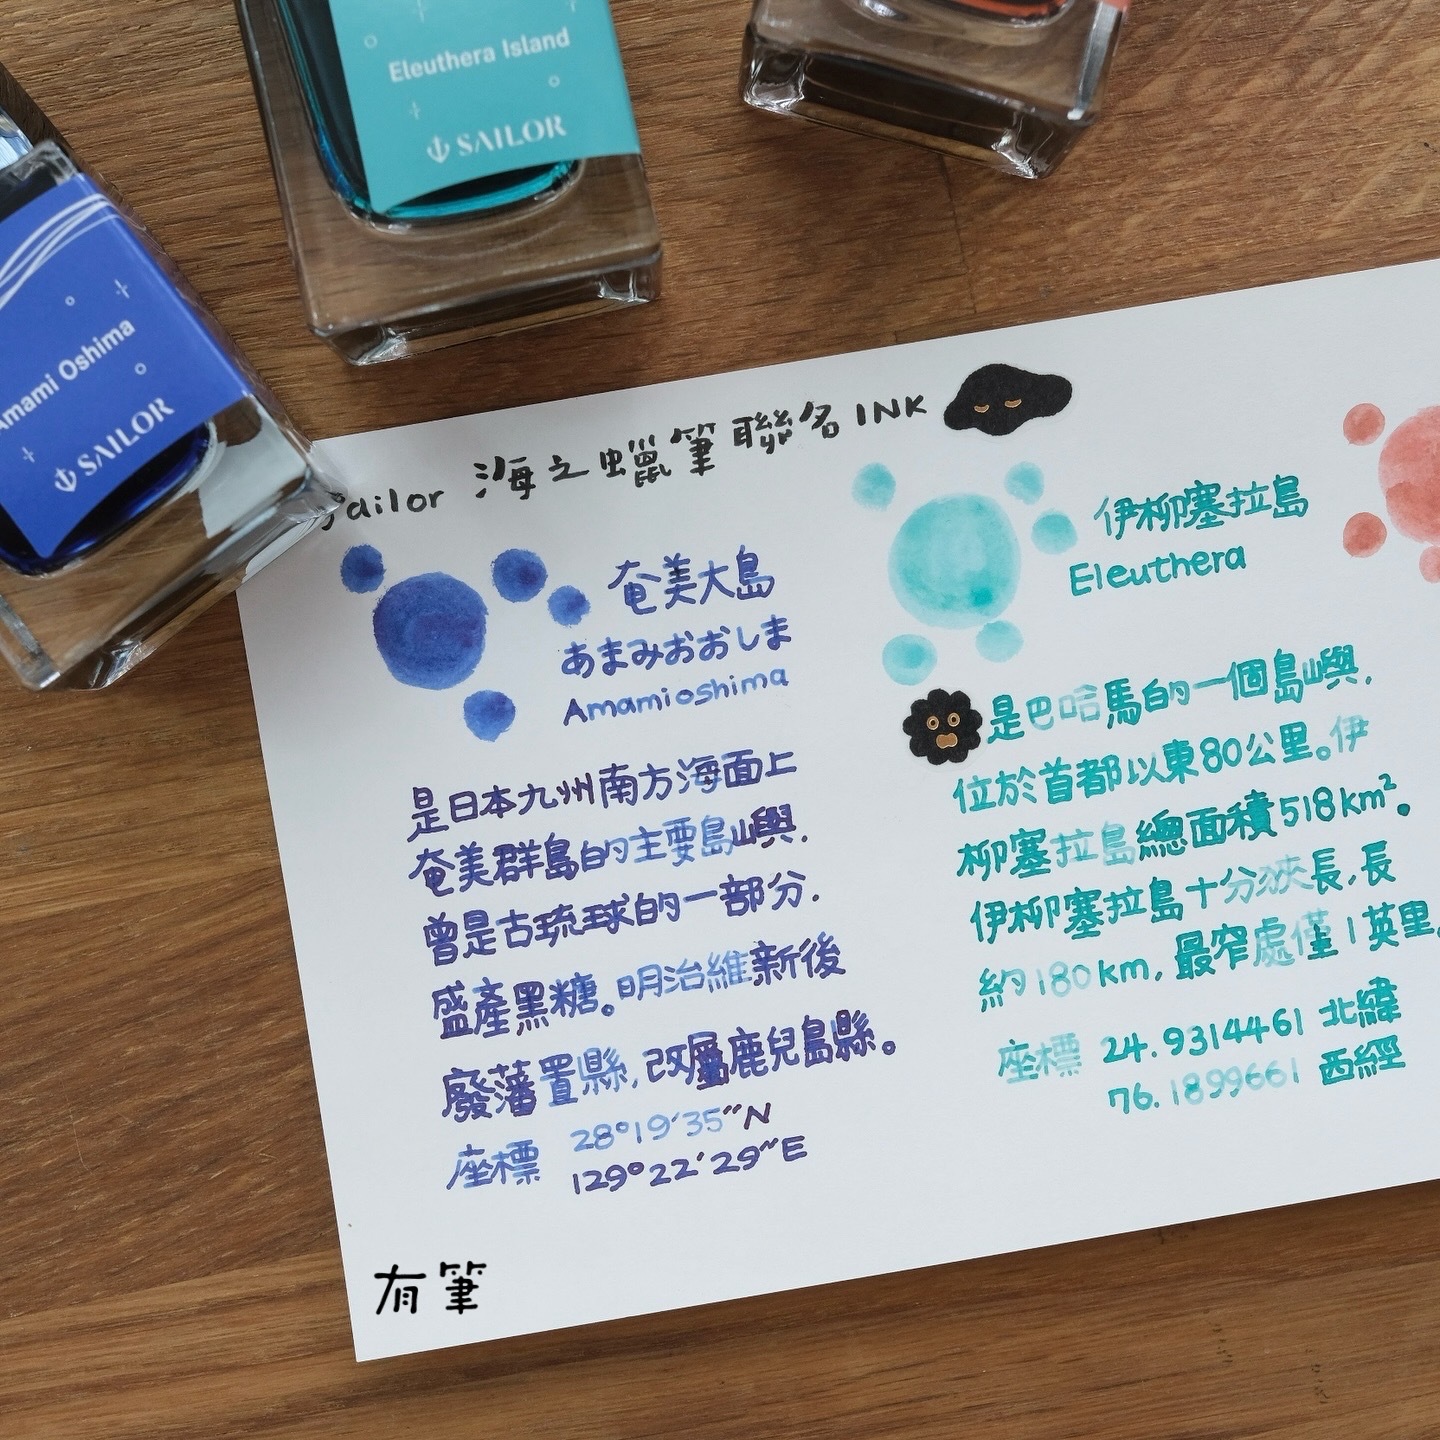 Eleuthera Island
SAILOR
Amami Oshima
SAILOR
Sailor 海之蠟筆聯名INK
奄美大島
あまみおおしま
Amamioshima
是日本九州南方海面上
奄美群島的主要島嶼,
曾是古琉球的一部分,
盛產黑糖。明治維新後
廢藩置縣,改屬鹿兒島縣。
座標 28°19′35″N
129°22′29″E
伊柳塞拉島
Eleuthera
是巴哈馬的一個島嶼,
位於首都以東80公里。伊
柳塞拉島總面積518km²。
伊柳塞拉島十分狹長,長
約180km,最窄處僅1英里。
座標 24.9314461 北緯
76.1899661 西經
有筆